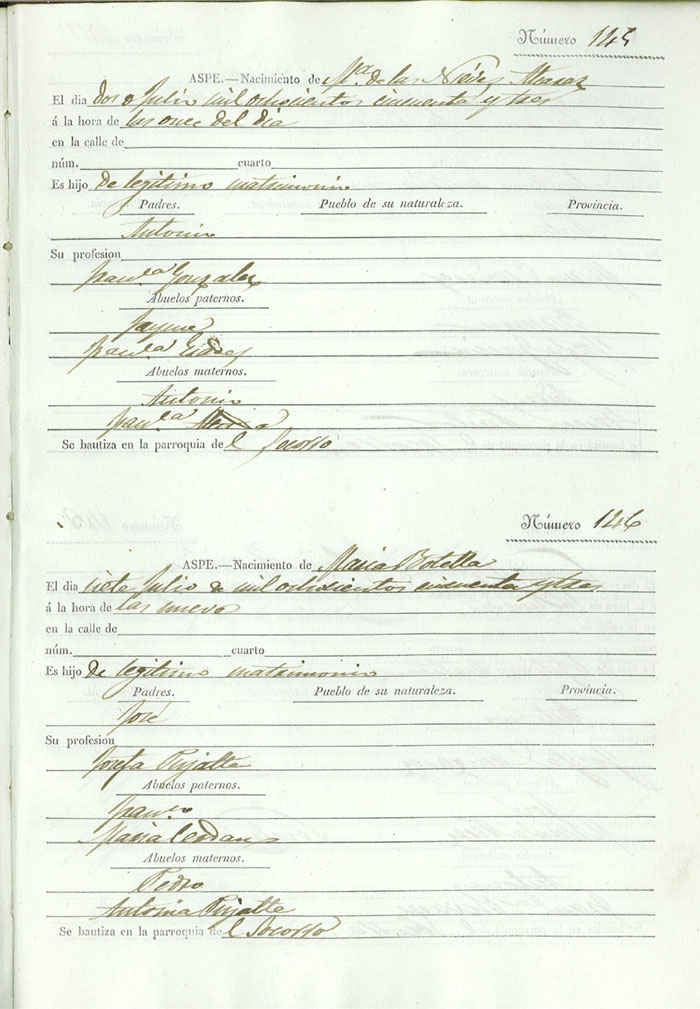 Número 145
ASPE.—Nacimiento de Mª de las Nieves
El dia dos Julio mil ochocientos cincuenta y tres
á la hora de las once del dia
en la calle de
núm. cuarto
Es hijo de legitimo matrimonio
Padres. Pueblo de su naturaleza. Provincia.
Antonio
Su profesion
Franca Gonzalez
Abuelos paternos.
Jayme
Franca
Abuelos maternos.
Antonio
Franca
Se bautiza en la parroquia de l Socorro
Número 146
ASPE.—Nacimiento de Maria Botella
El dia siete Julio de mil ochocientos cincuenta y tres
á la hora de las nueve
en la calle de
núm. cuarto
Es hijo de legitimo matrimonio
Padres. Pueblo de su naturaleza. Provincia.
José
Su profesion
Josefa Pujalte
Abuelos paternos.
Franco
Maria Cerdan
Abuelos maternos.
Pedro
Antonia Pujalte
Se bautiza en la parroquia de l Socorro